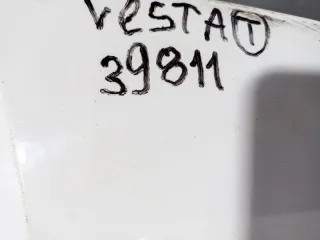 VESTA Ⓣ
39811